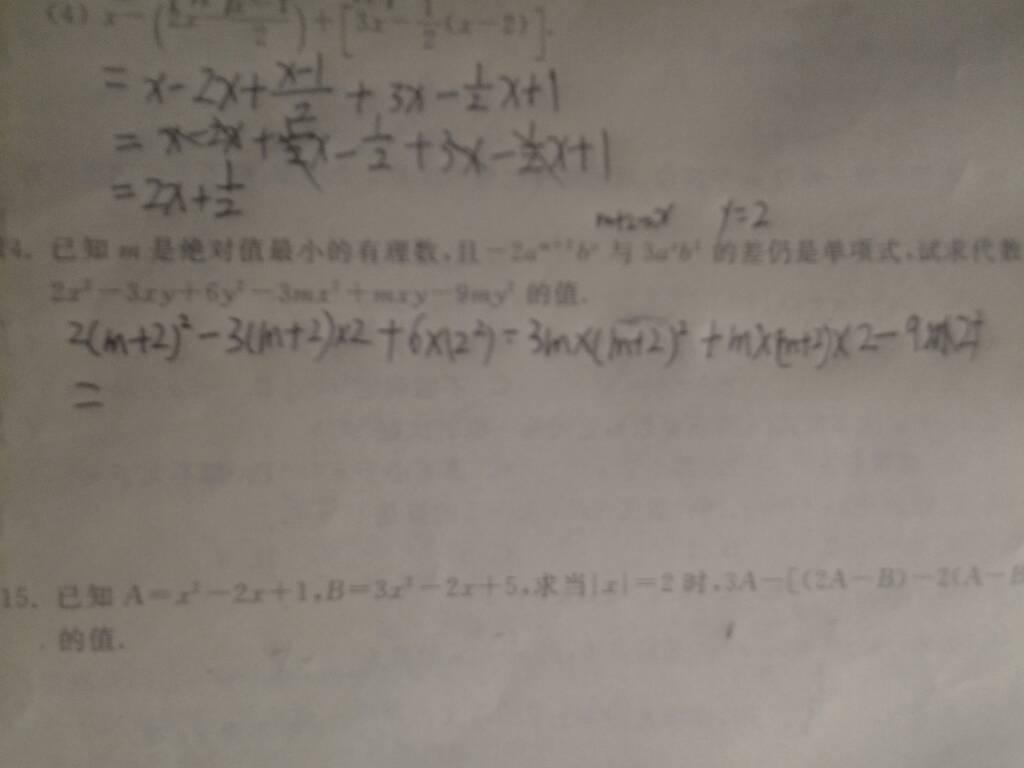 (4) x-(2x-\frac{x-1}{2})+[3x-\frac{1}{2}(x-2)].
=x-2x+\frac{x-1}{2}+3x-\frac{1}{2}x+1
=x-2x+\frac{1}{2}x-\frac{1}{2}+3x-\frac{1}{2}x+1
=2x+\frac{1}{2}
m+2=x y=2
4. 已知 m 是绝对值最小的有理数,且-2aᵐ⁺²bʸ与3aˣb²的差仍是单项式,试求代数
2x²-3xy+6y²-3mx²+mxy-9my²的值.
2(m+2)²-3(m+2)×2+6×(2²)=3m×(m+2)²+m×(m+2)×2-9m×2²
=
15. 已知 A=x²-2x+1,B=3x²-2x+5,求当|x|=2时,3A-[(2A-B)-2(A-B
的值.